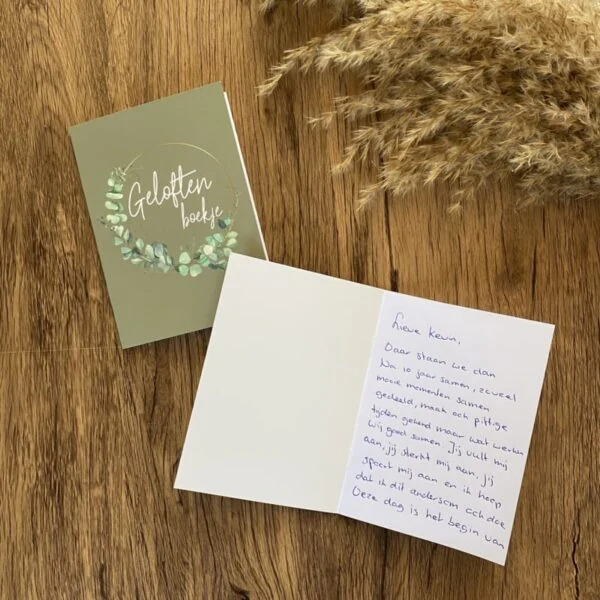 Geloften
boekje
Lieve Kevin,
Daar staan we dan
Na 10 jaar samen, zoveel
mooie momenten samen
gedeeld, maar ook pittige
tijden gekend maar wat werken
wij goed samen. Jij vult mij
aan, jij sterkt mij aan, jij
spoort mij aan en ik hoop
dat ik dit andersom ook doe
Deze dag is het begin van